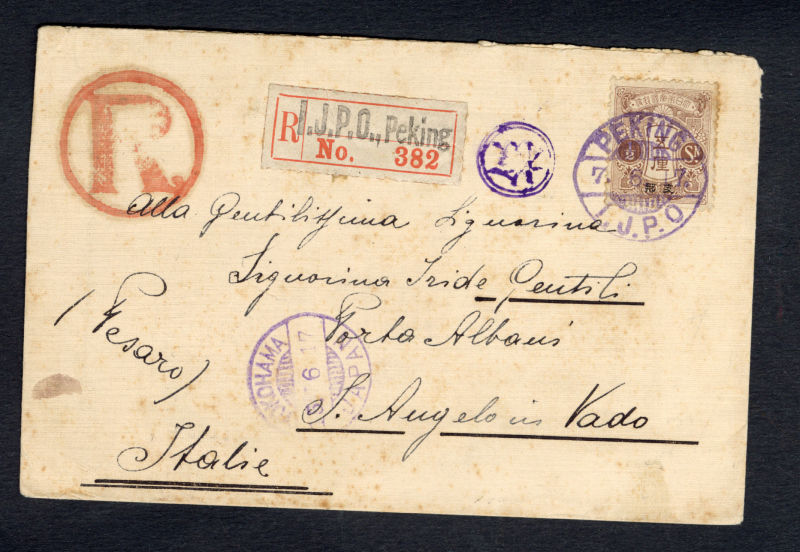 R
R I.J.P.O., Peking
No. 382
PEKING
7 6 1
I.J.P.O
五厘
½ Sn
支那
Alla Gentilissima Signorina
Signorina Iride Gentili
Porta Albani
S. Angelo in Vado
(Pesaro)
Italie
YOKOHAMA
6 17
JAPAN